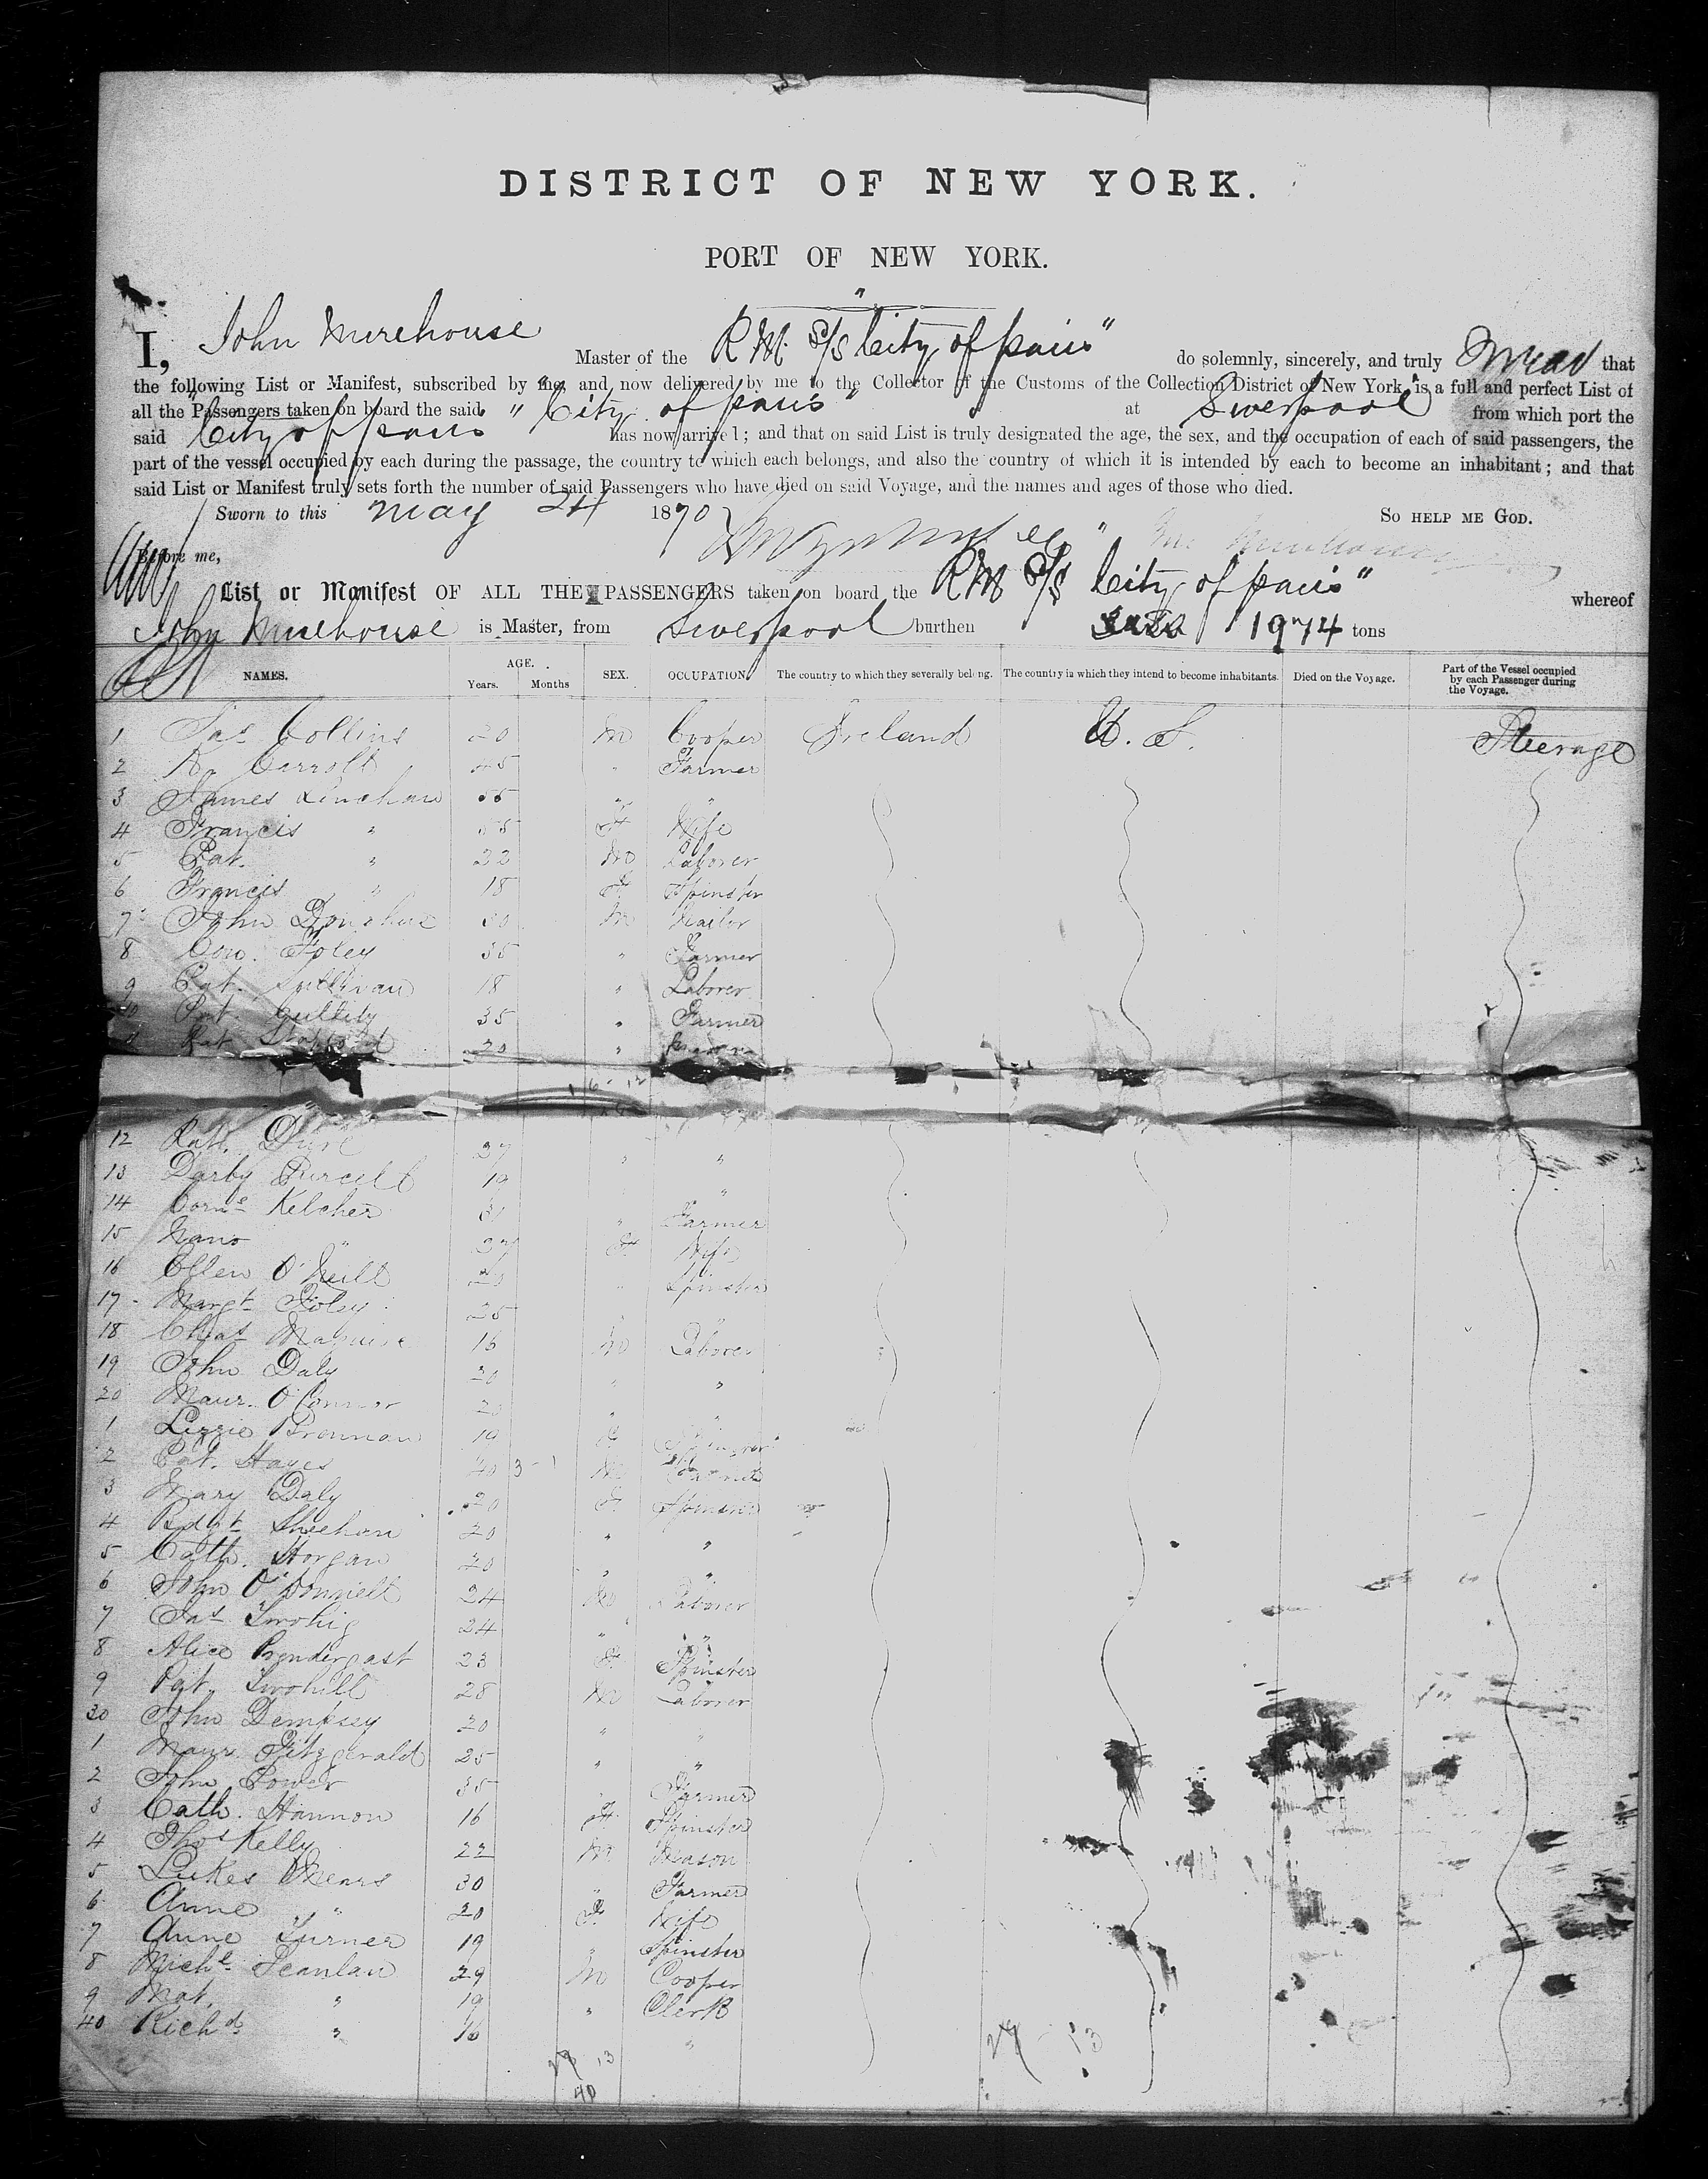 DISTRICT OF NEW YORK.
PORT OF NEW YORK.
I, John Mirehouse Master of the R M. S/S "City of paris" do solemnly, sincerely, and truly swear that
the following List or Manifest, subscribed by me, and now delivered by me to the Collector of the Customs of the Collection District of New York, is a full and perfect List of
all the Passengers taken on board the said "City of paris" at Liverpool from which port the
said "City of paris" has now arrived; and that on said List is truly designated the age, the sex, and the occupation of each of said passengers, the
part of the vessel occupied by each during the passage, the country to which each belongs, and also the country of which it is intended by each to become an inhabitant; and that
said List or Manifest truly sets forth the number of said Passengers who have died on said Voyage, and the names and ages of those who died.
Sworn to this may 24 1870 So HELP ME GOD.
Before me,
List or Manifest OF ALL THE PASSENGERS taken on board the R M S/S "City of paris" whereof
John Mirehouse is Master, from Liverpool burthen 1974 tons
NAMES. AGE. Years. Months SEX. OCCUPATION. The country to which they severally belong. The country in which they intend to become inhabitants. Died on the Voyage. Part of the Vessel occupied by each Passenger during the Voyage.
1 Jas Collins 20 M Cooper Ireland U. S. Steerage
2 Carroll 45 " Farmer
3 James Linehan 55 " "
4 Francis " 55 F Wife
5 Pat. " 22 M Laborer
6 Francis " 18 F Spinster
7 John Donohue 30 M Sailor
8 Con. Foley 35 " Farmer
9 Pat. Sullivan 18 " Laborer
10 Pat. 35 " Farmer
Pat 20 "
12 37 " "
13 Darby Purcell 19 "
14 Corns Kelcher 31 " Farmer
15 Nano " F Wife
16 Ellen O'Neill " Spinster
17 Margt Foley 25
18 Chas Maguire 16 M Laborer
19 John Daly 20 " "
20 Maur. O'Connor 20 " "
1 Lizzie Brennan 19 F Spinster
2 Pat. Hayes 40 M
3 Mary Daly 20 F Spinster
4 Bdgt Sheehan 20 " "
5 Cath. Horgan 20 " "
6 John O'Donnell 24 M Laborer
7 Jas Twohig 24 " "
8 Alice Prendergast 23 F Spinster
9 Pat. Twohill 28 M Laborer
30 John Dempsey 20 " "
1 Maur. Fitzgerald 25 " "
2 John Power 35 Farmer
3 Cath. Hannon 16 F Spinster
4 Thos Kelly 22 M Mason
5 Lukes Mears 30 " Farmer
6 Anne " 20 F Wife
7 Anne Turner 19 " Spinster
8 Michl Scanlan 29 M Cooper
9 Mat. " 19 " Clerk
40 Richd " 16 "
27 13 27 - 13
40